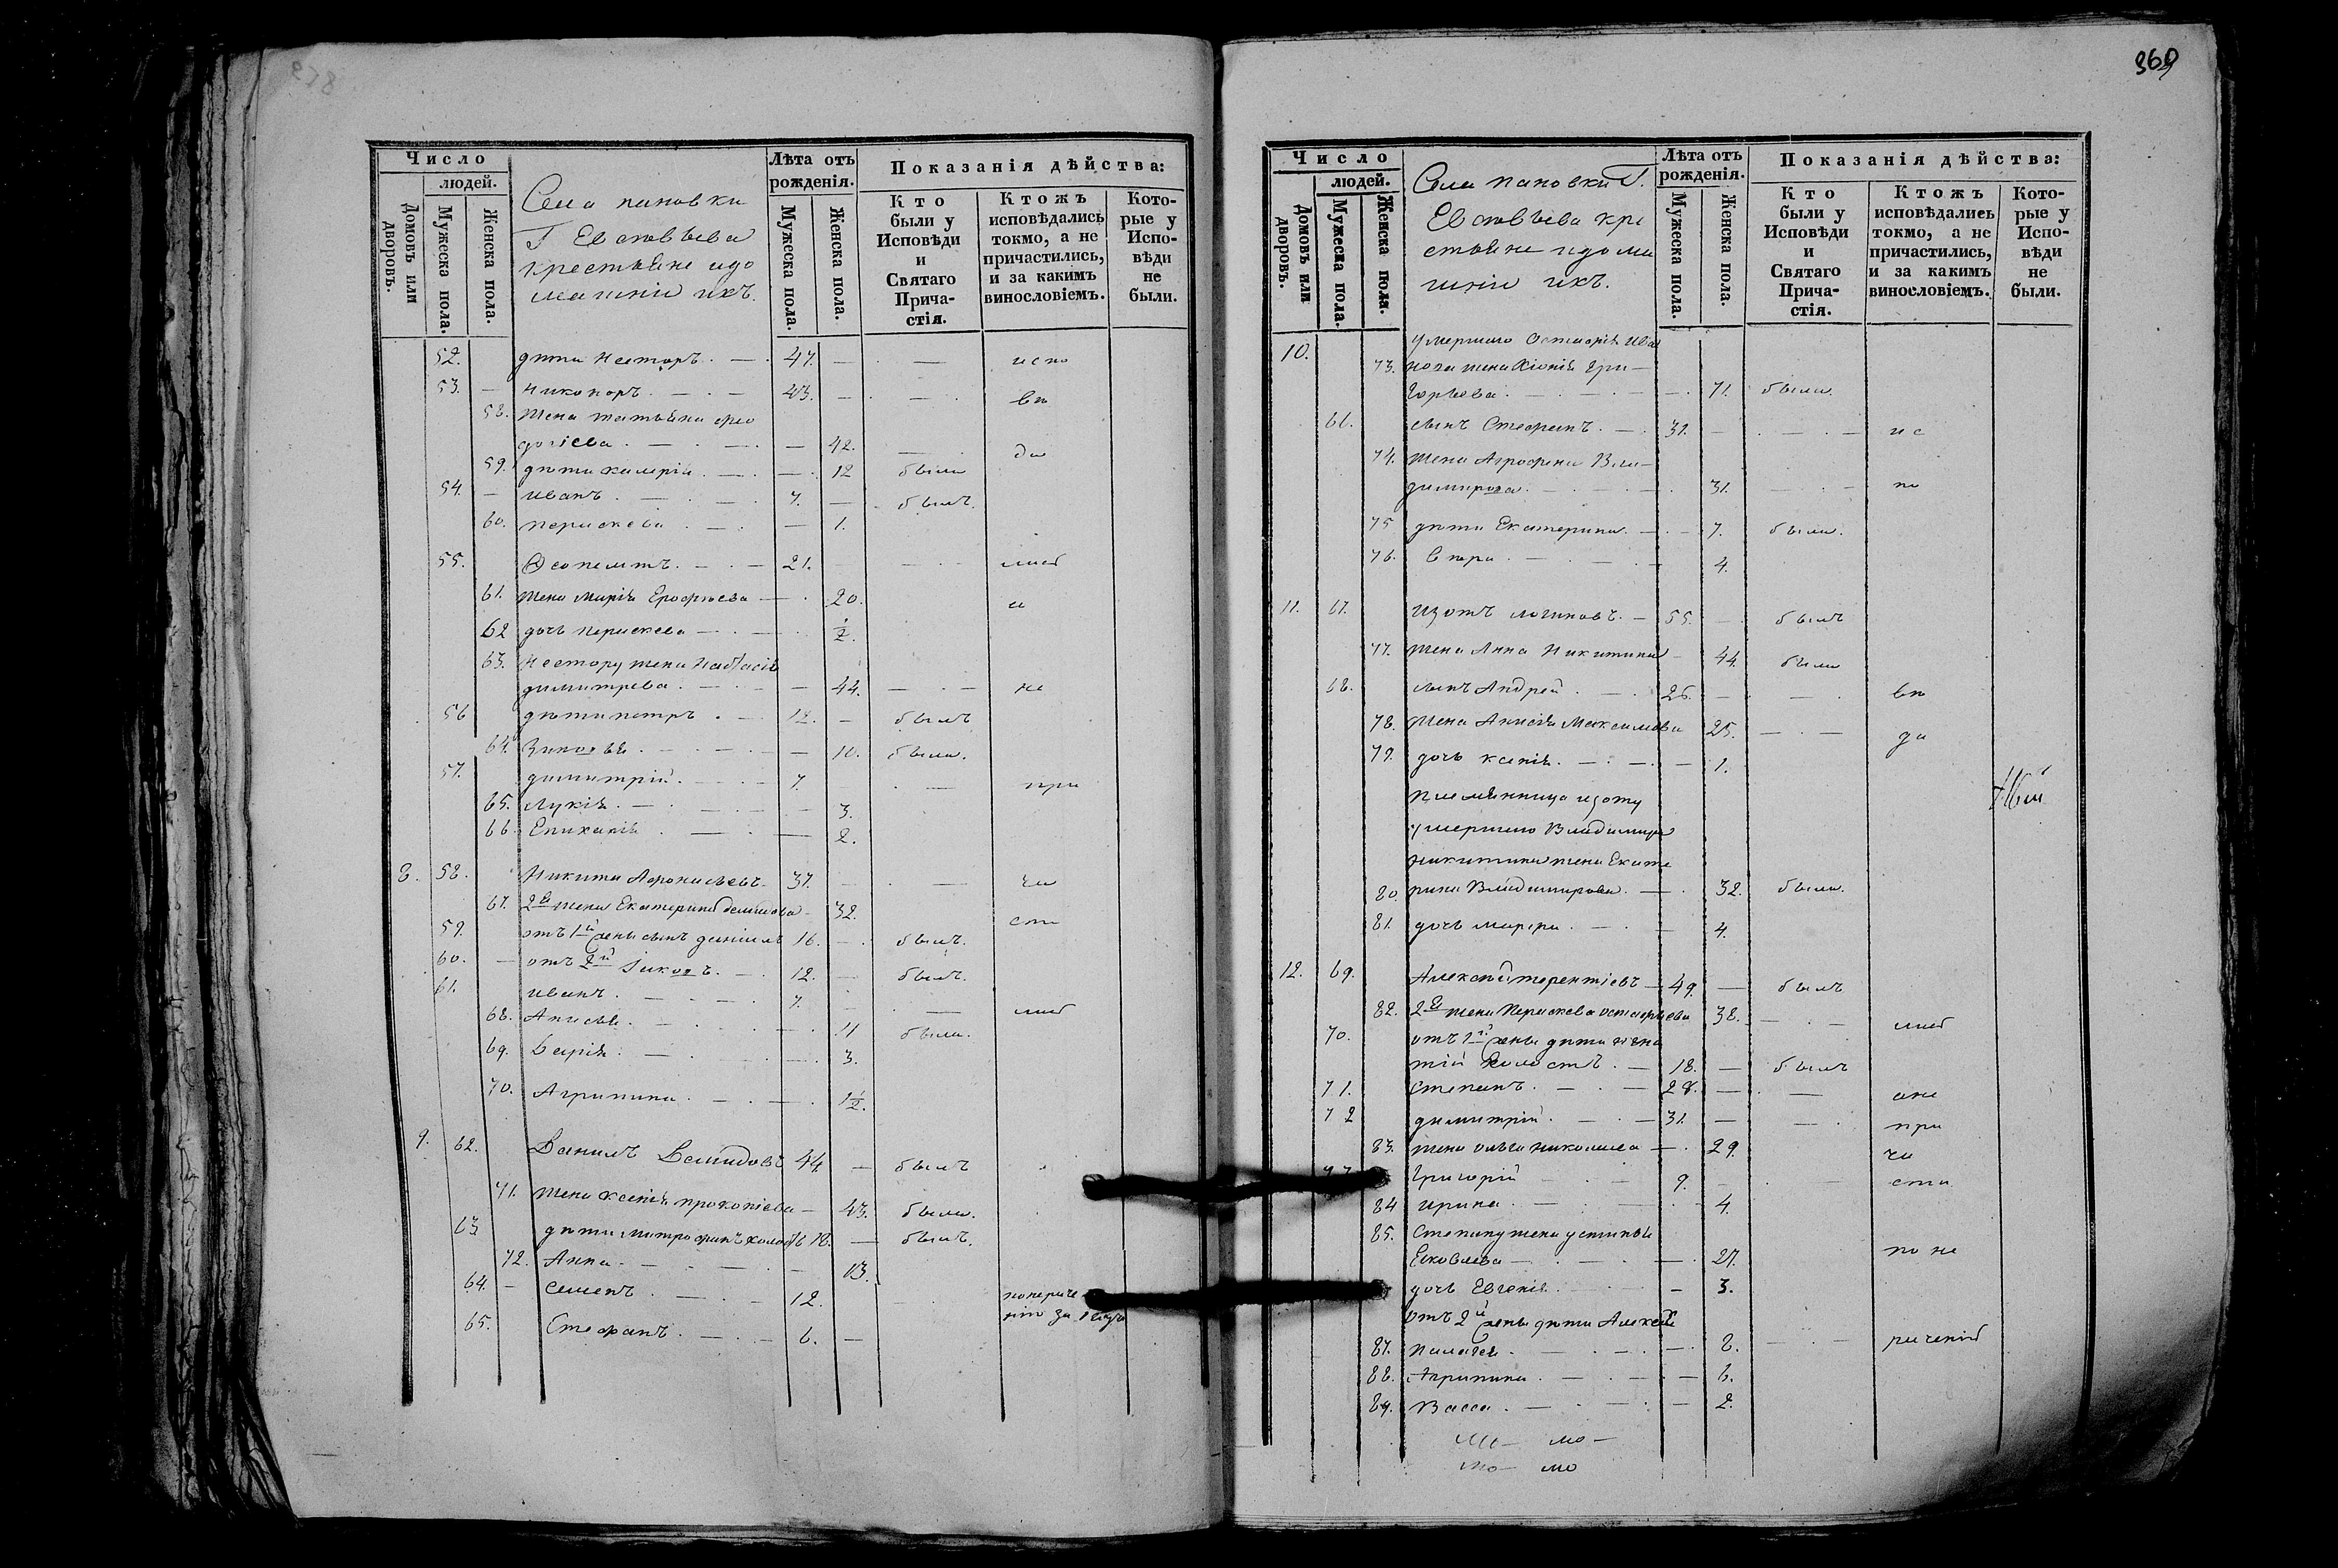 Число
людей.
Домовъ или дворовъ.
Мужеска пола.
Женска пола.
Села пановки
Г Евсовьева
крестьяне идо
машнiи ихъ.
Лѣта отъ
рожденiя.
Мужеска пола.
Женска пола.
Показанiя дѣйства:
Кто
были у
Исповѣди
и
Святаго
Прича-
стiя.
Ктожъ
исповѣдались
токмо, а не
причастились,
и за какимъ
винословiемъ.
Кото-
рые у
Испо-
вѣди
не
были.
52. дѣти Несторъ. 47. испо
53. Никоноръ. 43. вѣ
58. Жена татьяна фео
дотiева. 42. да
59. дѣти 12 была
54. иванъ. 7. былъ.
60. параскева 1.
55. Феопемтъ. 21. лись
61. Жена Марiя Ерофѣева 20. а
62 дочь параскева ½.
63. Нестору жена Настасiя
димитрева. 44. не
56 дѣти петръ. 12. былъ
64. Зиновья. 10. была.
57. димитрiй. 7. при
65. Лукiя. 3.
66. Епихарiя 2.
8. 58. Никита Афонасьевъ. 37. ча
67. 2я жена Екатерина демидова 32. сти
59. отъ 1й жены сынъ данiилъ 16. былъ.
60. отъ 2й Iаковъ. 12. былъ.
61. иванъ. 7. лись
68. Анисья. 11 была.
69. Дарiя. 3.
70. Агрипина. 1½.
9. 62. Данилъ Демидовъ 44 былъ
71. Жена ксенiя прокопiева 43. была.
63 дѣти митрофанъ холостъ 18. былъ.
72. Анна. 13.
64. семенъ. 12. попериче
нiю за
65. Стефанъ. 6.
369
Число
людей.
Домовъ или дворовъ.
Мужеска пола.
Женска пола.
Села пановки Г.
Евсовьева кре
стьяне идома
шнiи ихъ.
Лѣта отъ
рожденiя.
Мужеска пола.
Женска пола.
Показанiя дѣйства:
Кто
были у
Исповѣди
и
Святаго
Прича-
стiя.
Ктожъ
исповѣдались
токмо, а не
причастились,
и за какимъ
винословiемъ.
Кото-
рые у
Испо-
вѣди
не
были.
10. умершаго Ива
73. нова жена Хiонiя Гри
горьева. 71. была.
66. сынъ Стефанъ. 31. ис
74. Жена Агрофена Вла
димирова. 31. по
75 дѣти Екатерина. 7. была.
76. вѣра. 4.
11. 67. Изотъ логиновъ. 55. былъ
77. Жена Анна Никитина 44. была
68. сынъ Андрей. 26. вѣ
78. Жена Анисiя Максимова 25. да
79. дочь ксенiя. 1.
племянница изоту
умершаго Владимира
никитина жена Екате
80. рина Владимирова. 32. была.
81. дочь марфа. 4.
12. 69. Алексей терентiевъ 49. былъ
82. 2я жена Параскева 38. лись
70. отъ 1й жены дѣти игна
тiй холостъ. 18. былъ
71. Степанъ. 28. ане
72 димитрiй. 31. при
83. жена ольга николаева 29. ча
Григорiй 9. сти
84 ирина. 4.
85. Степану жена устинья
Яковлева 27. по не
дочь Евгенiя. 3.
отъ 2й жены дѣти Алексей
87. пелагея. 8. риченiю
88. Агрипина. 6.
89. Васса. 2.